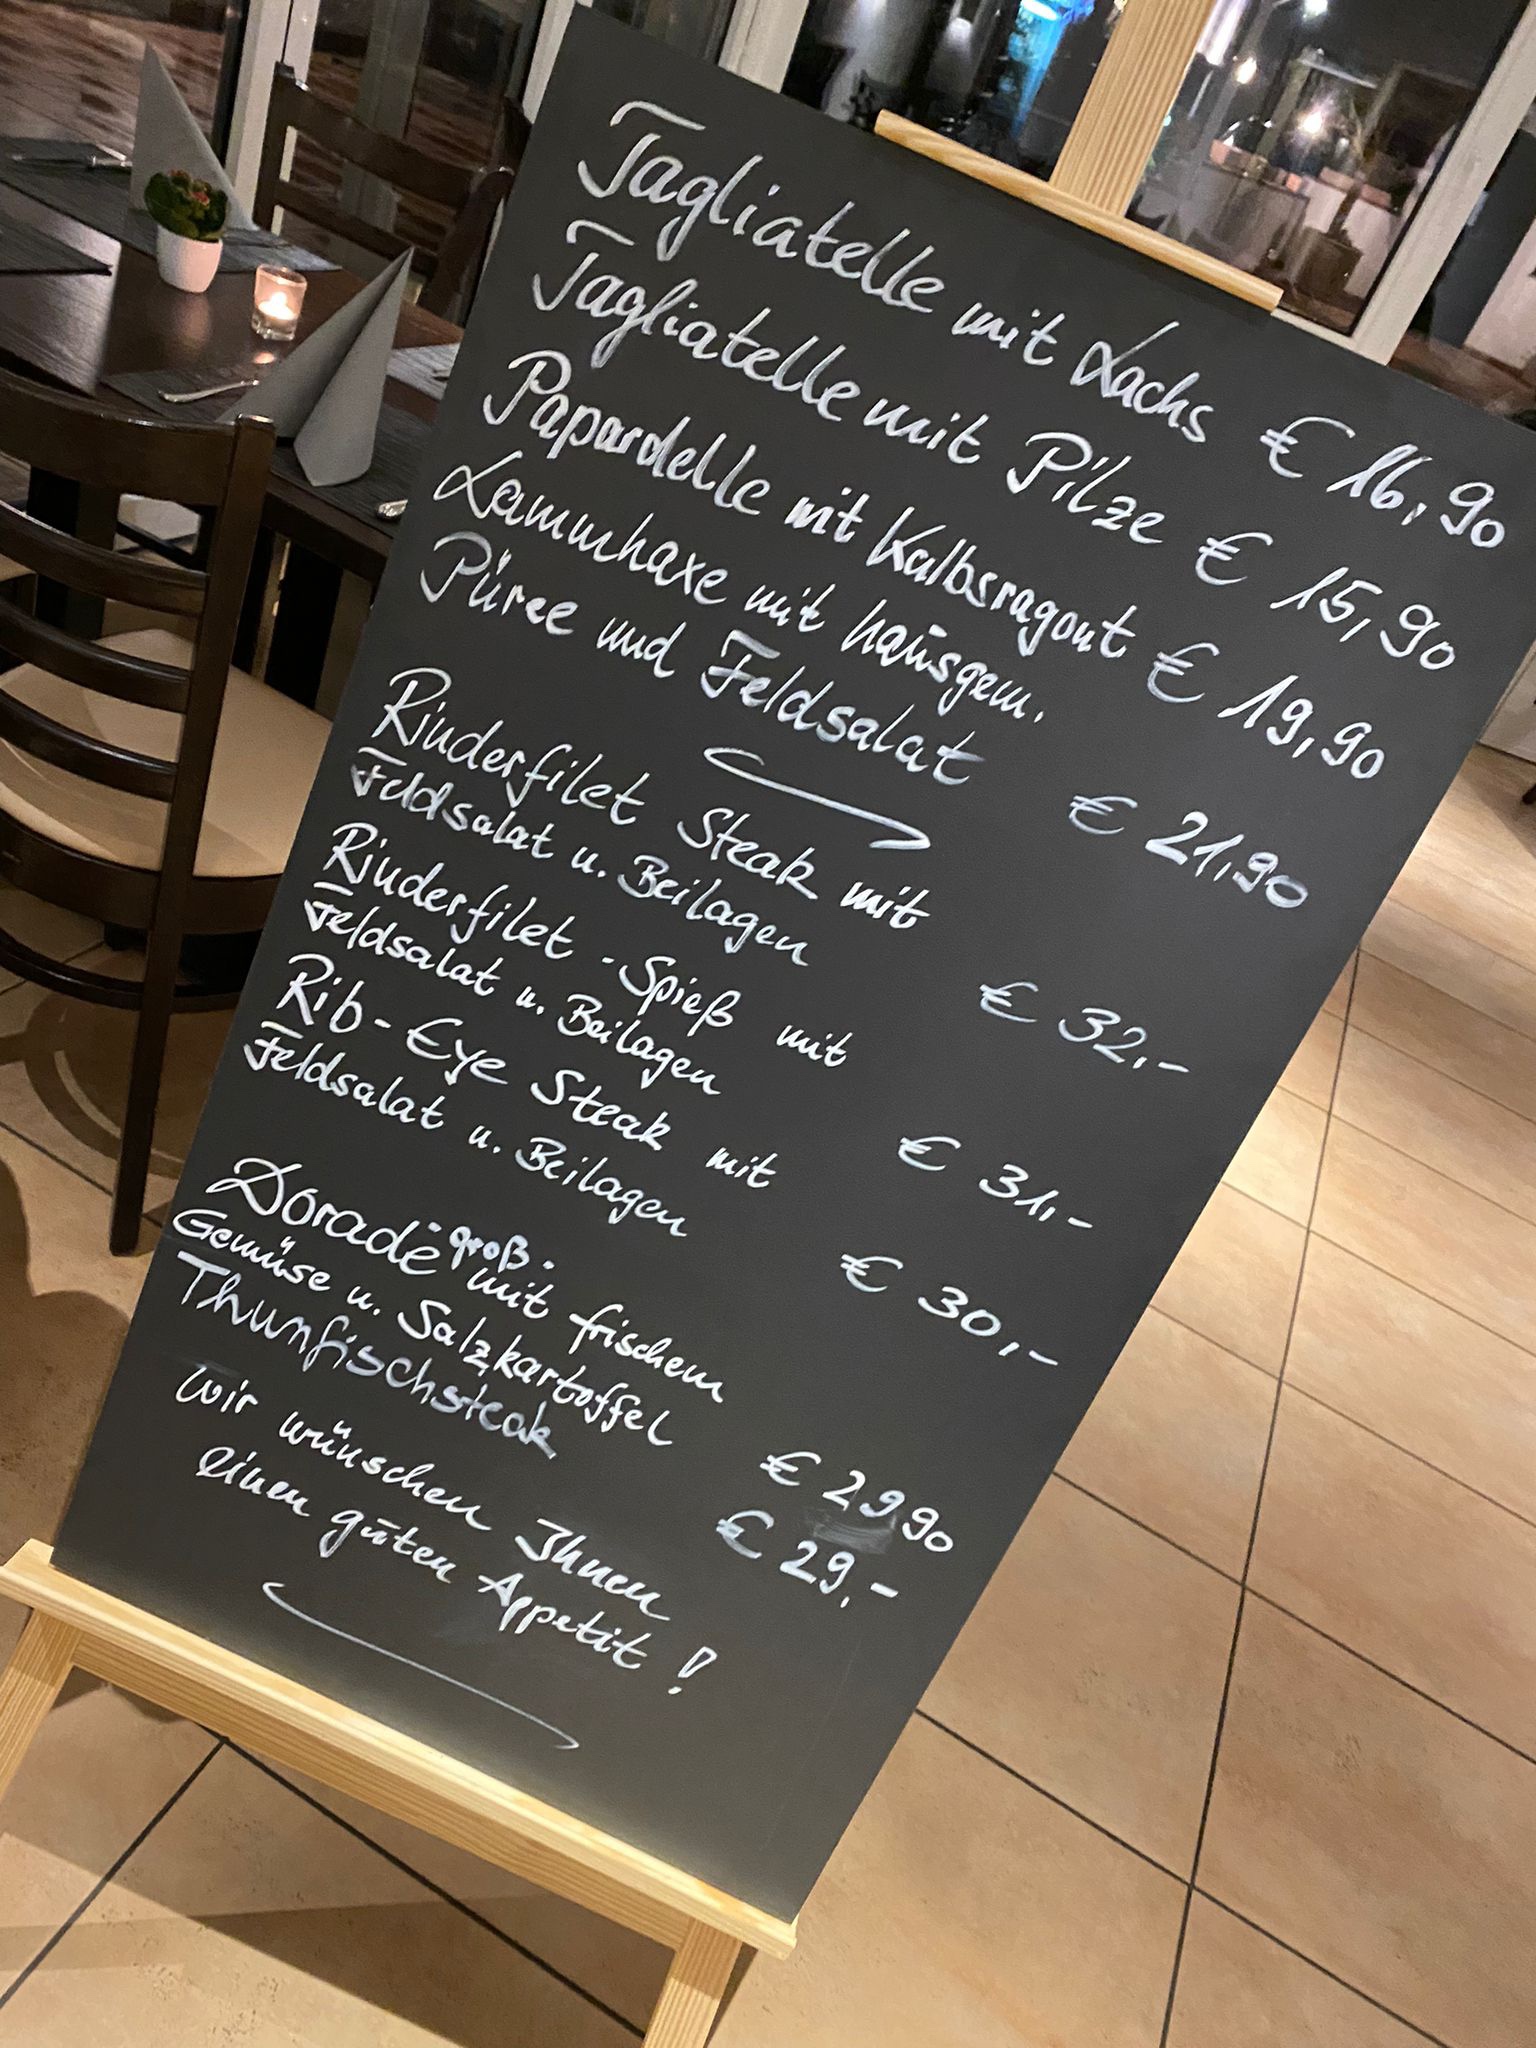 Tagliatelle mit Lachs € 16,90
Tagliatelle mit Pilze € 15,90
Papardelle mit Kalbsragout € 19,90
Lammhaxe mit hausgem.
Püree und Feldsalat € 21,90
Rinderfilet Steak mit
Feldsalat u. Beilagen € 32,-
Rinderfilet-Spieß mit
Feldsalat u. Beilagen € 31,-
Rib-Eye Steak mit
Feldsalat u. Beilagen € 30,-
Dorade -groß- mit frischem
Gemüse u. Salzkartoffel € 29,90
Thunfischsteak € 29,-
Wir wünschen Ihnen
einen guten Appetit!